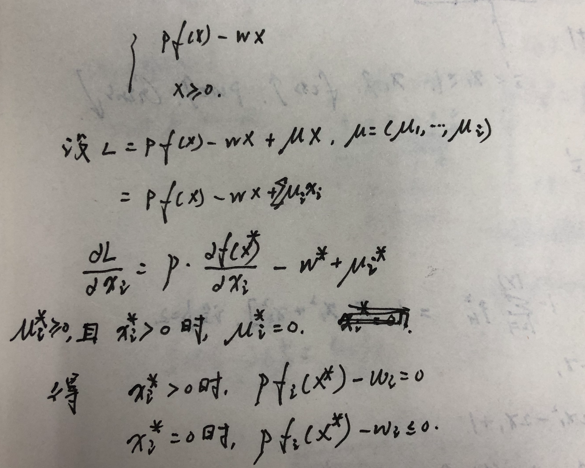 { pf(x) - wx
x ≥ 0.
设 L = pf(x) - wx + μx. μ = (μ₁, ⋯, μᵢ)
= pf(x) - wx + Σμᵢxᵢ
∂L/∂xᵢ = p · ∂f(x*)/∂xᵢ - w* + μᵢ*
μᵢ* ≥ 0, 且 xᵢ* > 0 时, μᵢ* = 0.
得 xᵢ* > 0 时, pfᵢ(x*) - wᵢ = 0
xᵢ* = 0 时, pfᵢ(x*) - wᵢ ≤ 0.